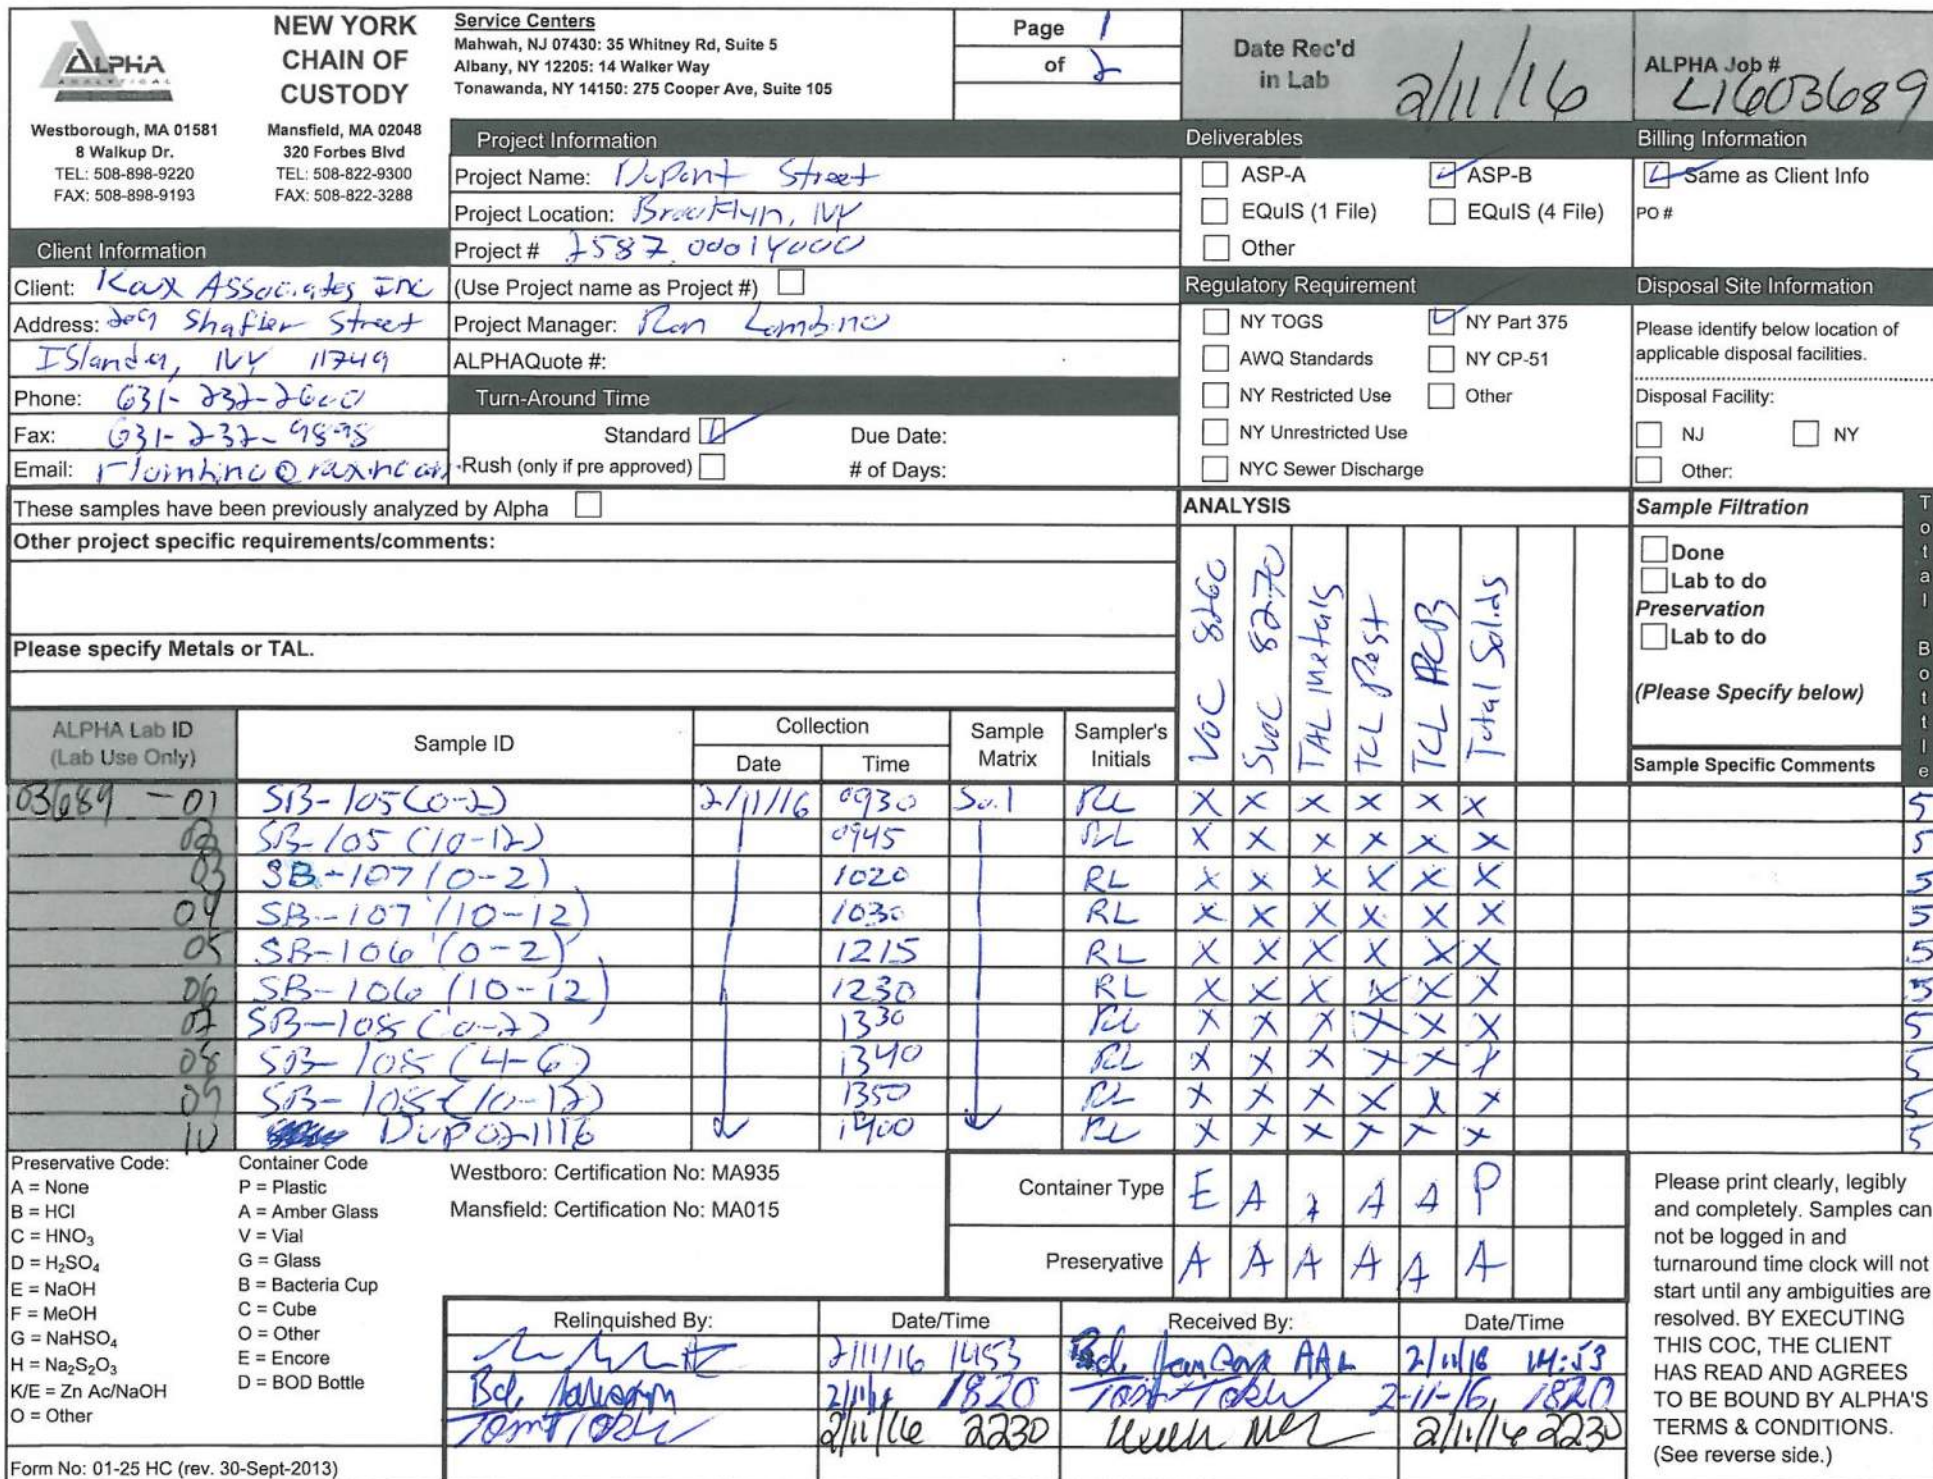 ALPHA
ANALYTICAL
NEW YORK
CHAIN OF
CUSTODY
Westborough, MA 01581
8 Walkup Dr.
TEL: 508-898-9220
FAX: 508-898-9193
Mansfield, MA 02048
320 Forbes Blvd
TEL: 508-822-9300
FAX: 508-822-3288
Service Centers
Mahwah, NJ 07430: 35 Whitney Rd, Suite 5
Albany, NY 12205: 14 Walker Way
Tonawanda, NY 14150: 275 Cooper Ave, Suite 105
Page 1
of 2
Date Rec'd
in Lab
2/11/16
ALPHA Job #
L1603689
Project Information
Project Name: DuPont Street
Project Location: Brooklyn, NY
Project # 2587.0001Y000
(Use Project name as Project #)
Project Manager: Ron Lombino
ALPHAQuote #:
Turn-Around Time
Standard
Due Date:
Rush (only if pre approved)
# of Days:
Client Information
Client: Associates Inc
Address: 209 Shafter Street
Islandia, NY 11749
Phone: 631-232-2600
Fax: 631-232-9898
Email:
Deliverables
ASP-A
ASP-B
EQuIS (1 File)
EQuIS (4 File)
Other
Regulatory Requirement
NY TOGS
NY Part 375
AWQ Standards
NY CP-51
NY Restricted Use
Other
NY Unrestricted Use
NYC Sewer Discharge
Billing Information
Same as Client Info
PO #
Disposal Site Information
Please identify below location of
applicable disposal facilities.
Disposal Facility:
NJ
NY
Other:
These samples have been previously analyzed by Alpha
Other project specific requirements/comments:
Please specify Metals or TAL.
ANALYSIS
VOC 8260
SVOC 8270
TAL Metals
TCL Pest
TCL PCB
Total Solids
Sample Filtration
Done
Lab to do
Preservation
Lab to do
(Please Specify below)
Sample Specific Comments
Total Bottle
ALPHA Lab ID
(Lab Use Only)
Sample ID
Collection
Date
Time
Sample
Matrix
Sampler's
Initials
03689 -01 SB-105(0-2) 2/11/16 0930 Soil RL X X X X X X 5
02 SB-105 (10-12) 0945 RL X X X X X X 5
03 SB-107 (0-2) 1020 RL X X X X X X 5
04 SB-107 (10-12) 1030 RL X X X X X X 5
05 SB-106 (0-2) 1215 RL X X X X X X 5
06 SB-106 (10-12) 1230 RL X X X X X X 5
07 SB-108 (0-2) 1330 RL X X X X X X 5
08 SB-108 (4-6) 1340 RL X X X X X X 5
09 SB-108 (10-12) 1350 RL X X X X X X 5
10 DUP021116 1400 RL X X X X X X 5
Preservative Code:
A = None
B = HCl
C = HNO₃
D = H₂SO₄
E = NaOH
F = MeOH
G = NaHSO₄
H = Na₂S₂O₃
K/E = Zn Ac/NaOH
O = Other
Container Code
P = Plastic
A = Amber Glass
V = Vial
G = Glass
B = Bacteria Cup
C = Cube
O = Other
E = Encore
D = BOD Bottle
Westboro: Certification No: MA935
Mansfield: Certification No: MA015
Container Type E A A A A P
Preservative A A A A A A
Relinquished By:
Date/Time
Received By:
Date/Time
2/11/16 1453 AAL 2/11/16 14:53
2/11/16 1820 2-11-16 1820
2/11/16 2230 2/11/16 2230
Please print clearly, legibly
and completely. Samples can
not be logged in and
turnaround time clock will not
start until any ambiguities are
resolved. BY EXECUTING
THIS COC, THE CLIENT
HAS READ AND AGREES
TO BE BOUND BY ALPHA'S
TERMS & CONDITIONS.
(See reverse side.)
Form No: 01-25 HC (rev. 30-Sept-2013)